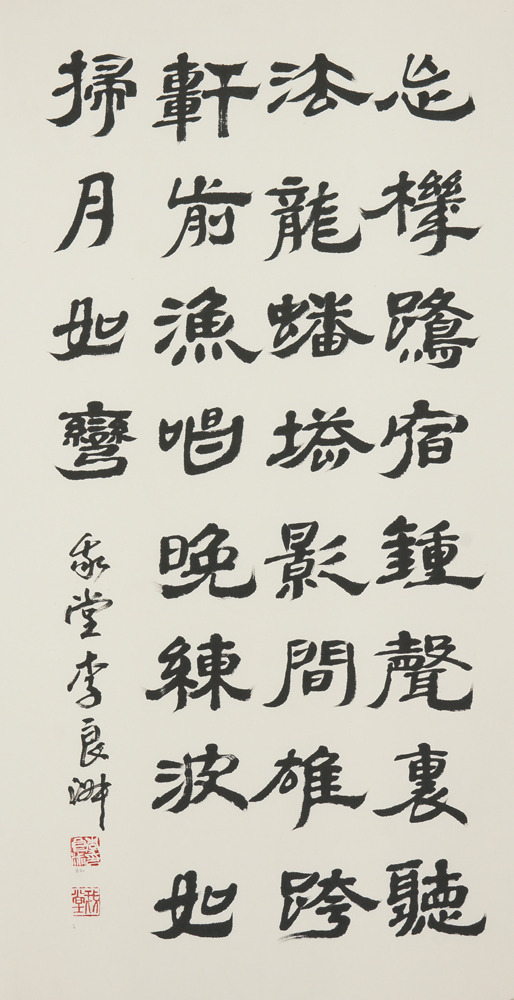 忘機鷺宿鍾聲裏聽
法龍蟠塔影間雄跨
軒前漁唱晚練波如
掃月如彎
堂李良